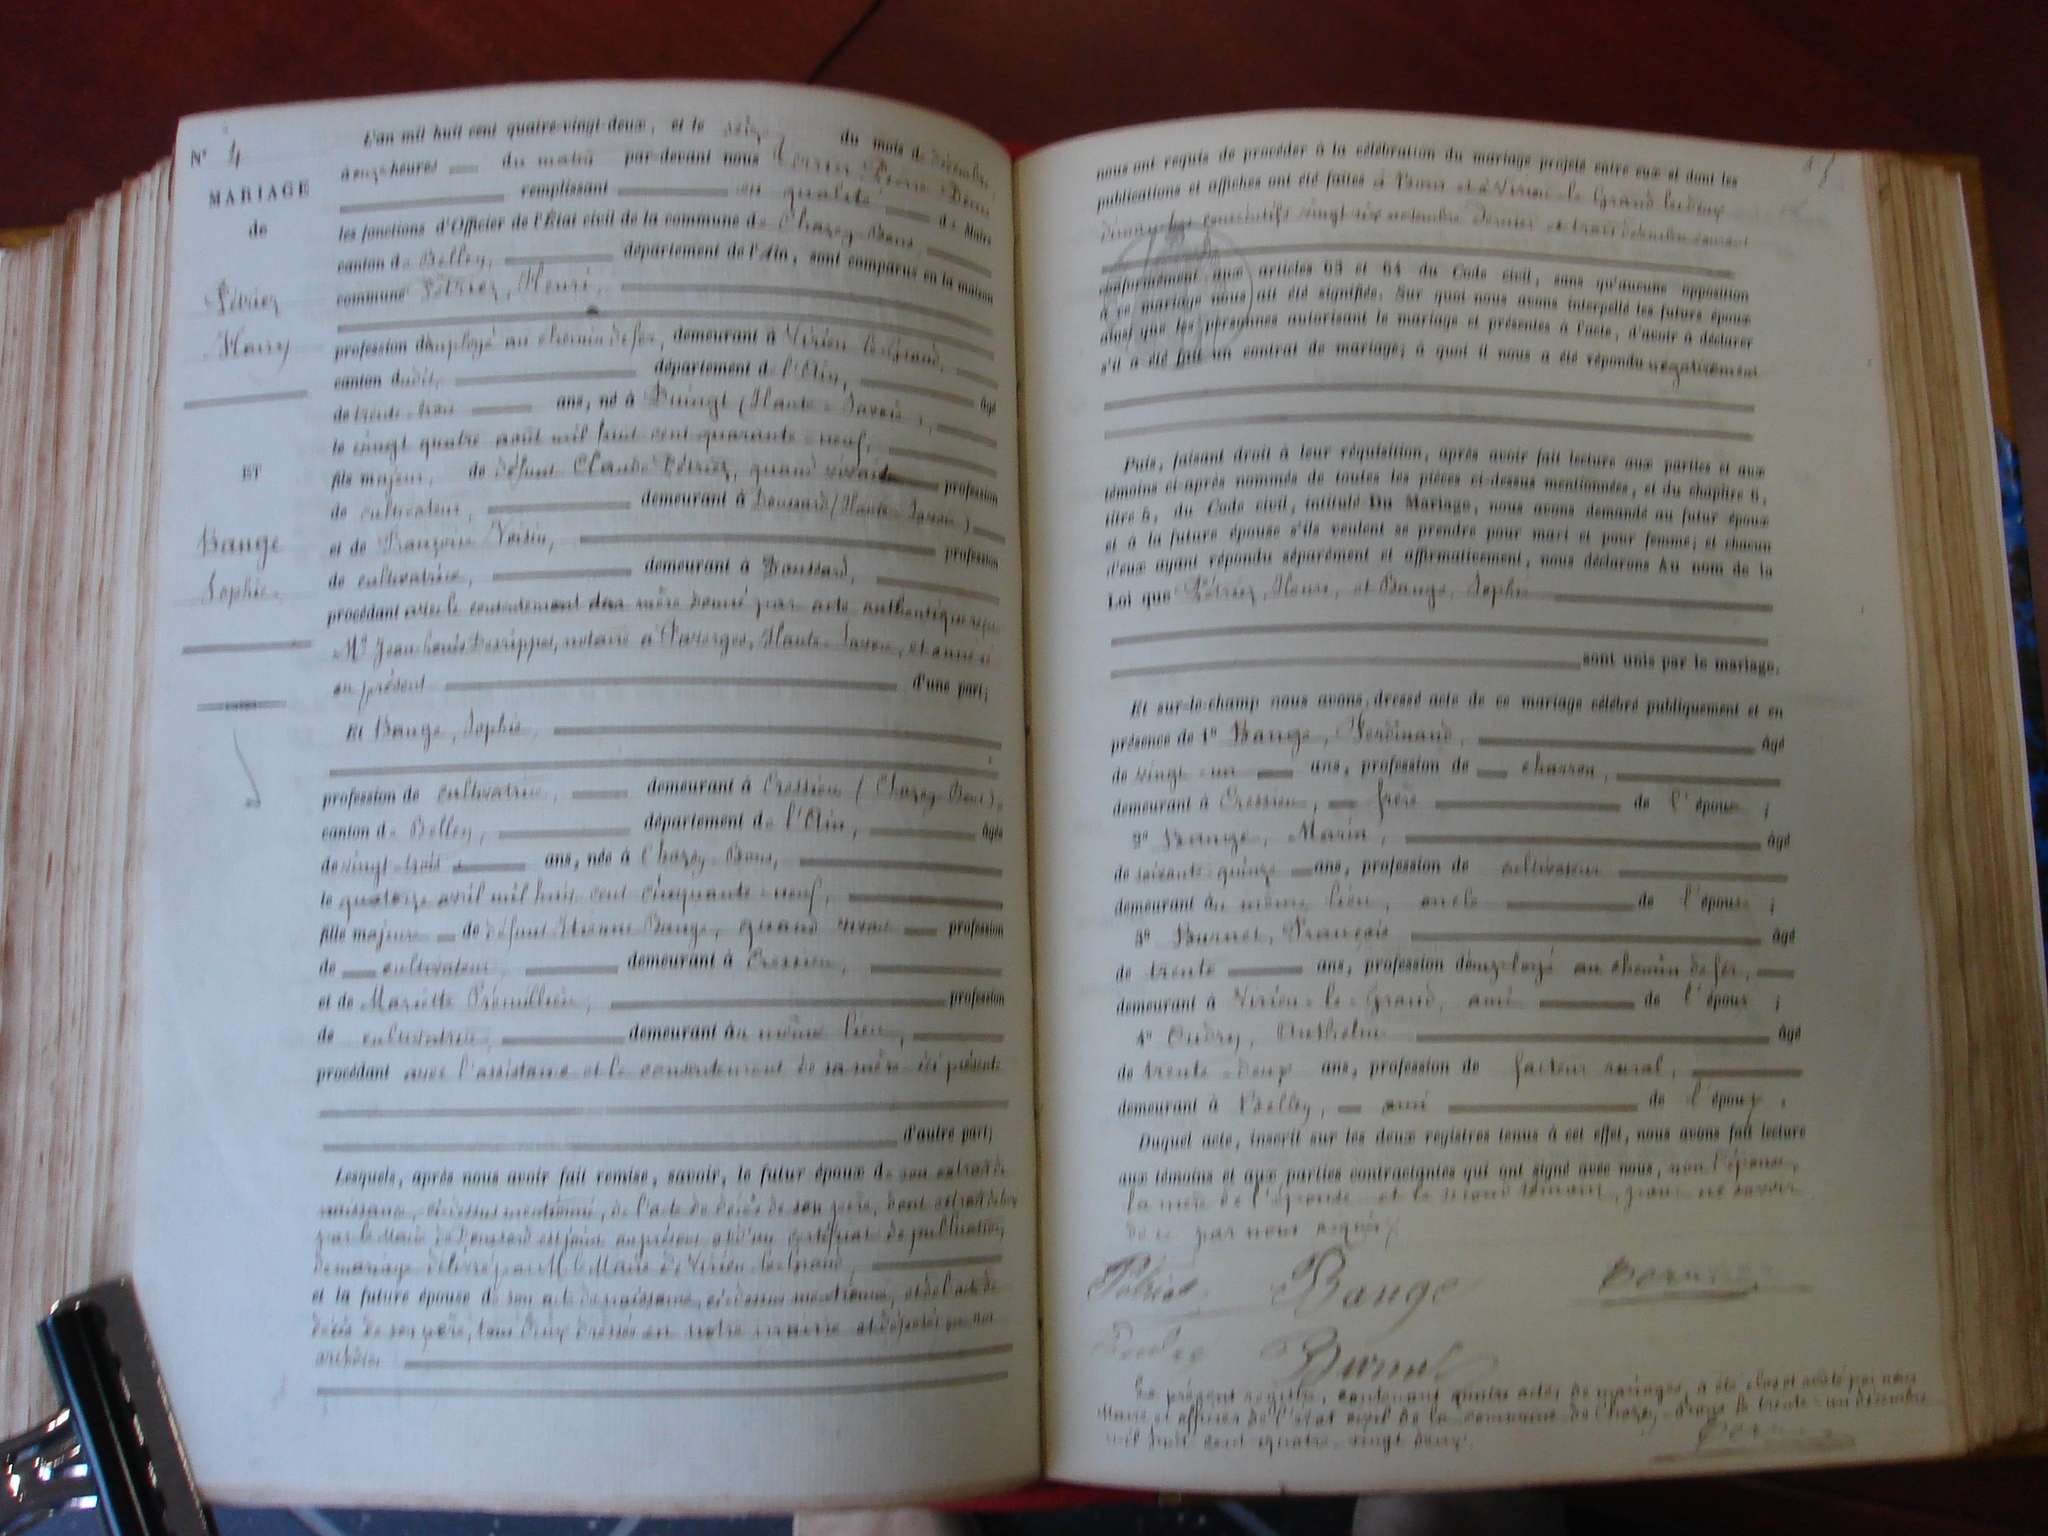 N° 4
MARIAGE
de
Pétriez
Henry
ET
Bange
Sophie
L'an mil huit cent quatre-vingt-deux, et le seize du mois de décembre,
heures du matin par-devant nous Pierre
remplissant en qualité de Maire
les fonctions d'Officier de l'État civil de la commune de Chazey-Bons
canton de Belley, département de l'Ain, sont comparus en la maison
commune Pétriez, Henri,
profession d'employé au chemin de fer, demeurant à Virieu-le-Grand,
canton dudit, département de l'Ain, âgé
de trente-trois ans, né à Duingt (Haute-Savoie),
le vingt quatre août mil huit cent quarante-neuf,
fils majeur, de défunt Claude Pétriez, quand vivait profession
de cultivateur, demeurant à Doussard (Haute-Savoie)
et de Françoise Voisin, profession
de cultivatrice, demeurant à Doussard,
procédant avec le consentement de sa mère donné par acte authentique reçu
Me Jean-Louis Desrippes, notaire à Faverges, Haute-Savoie, et annexé
au présent d'une part;
Et Bange, Sophie,
profession de cultivatrice, demeurant à Cressieu (Chazey-Bons),
canton de Belley, département de l'Ain, âgée
de vingt-trois ans, née à Chazey-Bons,
le quatorze avril mil huit cent cinquante-neuf,
fille majeure de défunt Étienne Bange, quand vivait profession
de cultivateur, demeurant à Cressieu,
et de Mariette Prémillieu, profession
de cultivatrice, demeurant au même lieu,
procédant avec l'assistance et le consentement de sa mère ici présente
d'autre part;
Lesquels, après nous avoir fait remise, savoir, le futur époux de son extrait de
naissance, ci-dessus mentionné, de l'acte de décès de son père, dont extrait délivré
par le Maire de Doussard est joint au présent et d'un certificat de publication
de mariage délivré par M. le Maire de Virieu-le-Grand,
et la future épouse de son acte de naissance, ci-dessus mentionné, et de l'acte de
décès de son père, tous deux dressés en notre mairie et déposés en nos
archives
nous ont requis de procéder à la célébration du mariage projeté entre eux et dont les
publications et affiches ont été faites à Bons et à Virieu-le-Grand les deux
dimanches consécutifs vingt six novembre dernier et trois décembre courant
conformément aux articles 63 et 64 du Code civil, sans qu'aucune opposition
à ce mariage nous ait été signifiée. Sur quoi nous avons interpellé les futurs époux
ainsi que les personnes autorisant le mariage et présentes à l'acte, d'avoir à déclarer
s'il a été fait un contrat de mariage; à quoi il nous a été répondu négativement
Puis, faisant droit à leur réquisition, après avoir fait lecture aux parties et aux
témoins ci-après nommés de toutes les pièces ci-dessus mentionnées, et du chapitre 6,
titre 5, du Code civil, intitulé Du Mariage, nous avons demandé au futur époux
et à la future épouse s'ils veulent se prendre pour mari et pour femme; et chacun
d'eux ayant répondu séparément et affirmativement, nous déclarons Au nom de la
Loi que Pétriez, Henri, et Bange, Sophie
sont unis par le mariage.
Et sur-le-champ nous avons dressé acte de ce mariage célébré publiquement et en
présence de 1° Bange, Ferdinand, âgé
de vingt-un ans, profession de charron,
demeurant à Cressieu, frère de l'épouse;
2° Bange, Marin, âgé
de soixante-quinze ans, profession de cultivateur
demeurant au même lieu, oncle de l'épouse;
3° Burnet, François âgé
de trente ans, profession d'employé au chemin de fer,
demeurant à Virieu-le-Grand, ami de l'époux;
4° Oudry, Anthelme âgé
de trente-deux ans, profession de facteur rural,
demeurant à Belley, ami de l'époux.
Duquel acte, inscrit sur les deux registres tenus à cet effet, nous avons fait lecture
aux témoins et aux parties contractantes qui ont signé avec nous, non l'épouse,
la mère de l'épouse et le second témoin, pour ne savoir
de ce par nous requis.
Bange
Burnet
Le présent registre, contenant quatre actes de mariages, a été clos et arrêté par nous
Maire et officier de l'état civil de la commune de Chazey-Bons le trente-un décembre
mil huit cent quatre-vingt deux.